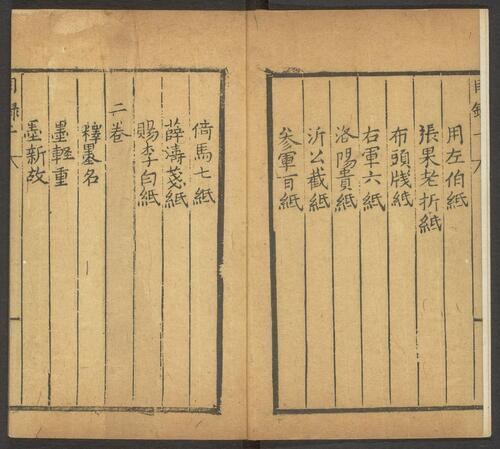 用左伯紙
張果老折紙
布頭牋紙
右軍六紙
洛陽貴紙
沂公截紙
叅軍百紙
倚馬七紙
薛濤箋紙
賜李白紙
二卷
釋墨名
墨輕重
墨新故